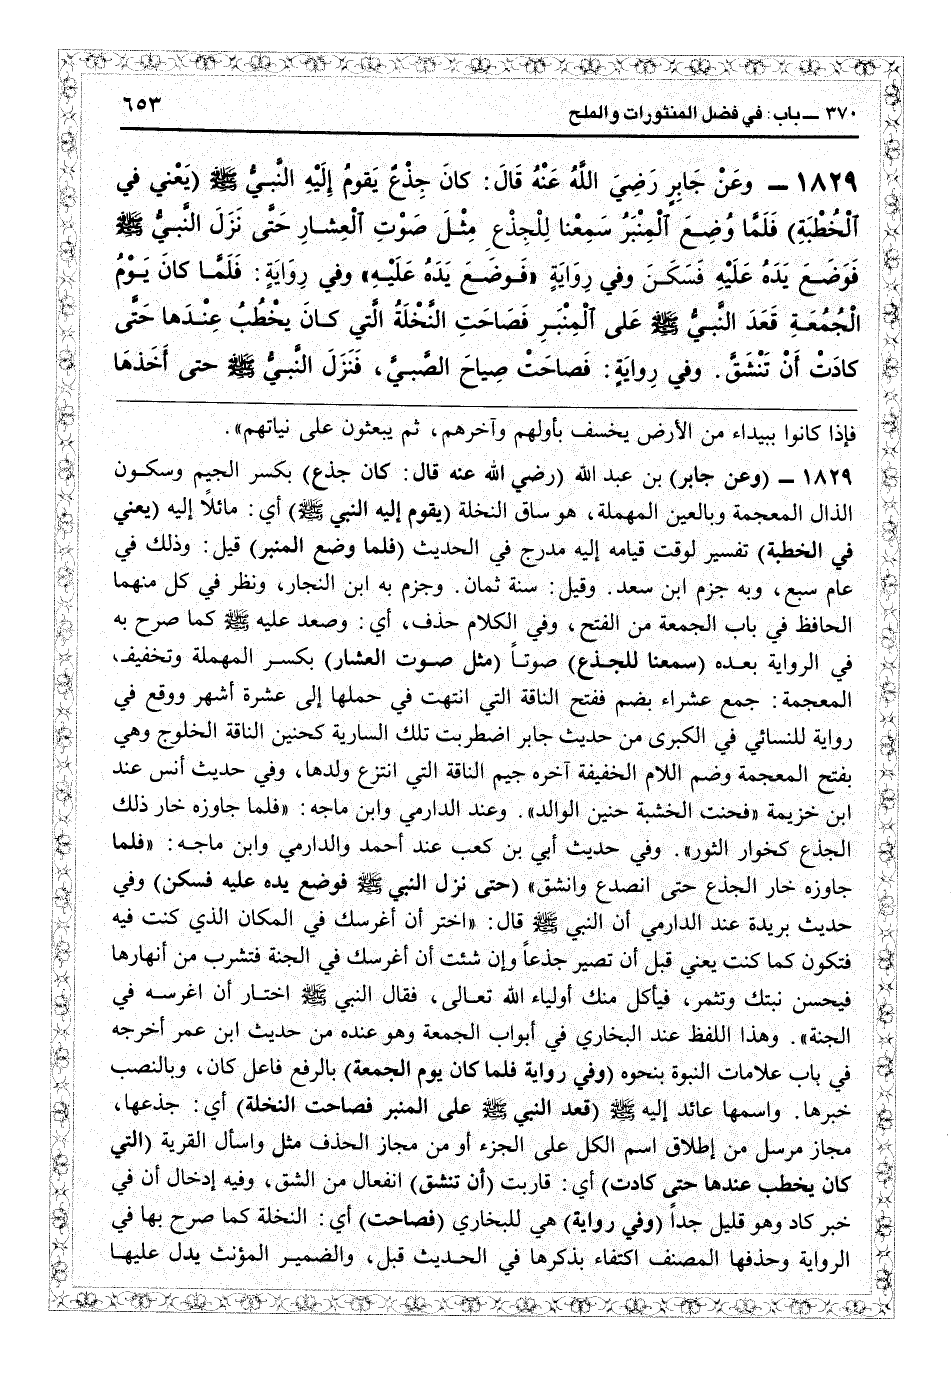 ٣٧٠ ــ باب: في فضل المنثورات والملح
٦٥٣
١٨٢٩ ــ وعَنْ جَابِرٍ رَضِيَ اللَّهُ عَنْهُ قَالَ: كانَ جِذْعٌ يَقومُ إِلَيْهِ النَّبيُّ ﷺ (يَعْني في
الْخُطْبَةِ) فَلَمَّا وُضِعَ الْمِنْبَرُ سَمِعْنا لِلْجِذْعِ مِثْلَ صَوْتِ الْعِشارِ حَتَّى نَزَلَ النَّبيُّ ﷺ
فَوَضَعَ يَدَهُ عَلَيْهِ فَسَكَنَ وفي رِوَايَةٍ «فَوضَعَ يَدَهُ عَلَيْهِ» وفي رِوايَةٍ: فَلَمَّا كانَ يَوْمُ
الْجُمُعَةِ قَعَدَ النَّبيُّ ﷺ عَلى الْمِنْبَرِ فَصَاحَتِ النَّخْلَةُ الَّتي كانَ يخْطُبُ عِنْدَها حَتَّى
كادَتْ أَنْ تَنْشَقَّ. وفي رِوايَةٍ: فَصاحَتْ صِياحَ الصَّبيِّ، فَنَزَلَ النَّبيُّ ﷺ حتى أَخَذهَا
فإذا كانوا ببيداء من الأرض يخسف بأولهم وآخرهم، ثم يبعثون على نياتهم».
١٨٢٩ ــ (وعن جابر) بن عبد الله (رضي الله عنه قال: كان جذع) بكسر الجيم وسكون
الذال المعجمة وبالعين المهملة، هو ساق النخلة (يقوم إليه النبي ﷺ) أي: مائلاً إليه (يعني
في الخطبة) تفسير لوقت قيامه إليه مدرج في الحديث (فلما وضع المنبر) قيل: وذلك في
عام سبع، وبه جزم ابن سعد. وقيل: سنة ثمان. وجزم به ابن النجار، ونظر في كل منهما
الحافظ في باب الجمعة من الفتح، وفي الكلام حذف، أي: وصعد عليه ﷺ كما صرح به
في الرواية بعده (سمعنا للجذع) صوتاً (مثل صوت العشار) بكسر المهملة وتخفيف،
المعجمة: جمع عشراء بضم ففتح الناقة التي انتهت في حملها إلى عشرة أشهر ووقع في
رواية للنسائي في الكبرى من حديث جابر اضطربت تلك السارية كحنين الناقة الخلوج وهي
بفتح المعجمة وضم اللام الخفيفة آخره جيم الناقة التي انتزع ولدها، وفي حديث أنس عند
ابن خزيمة «فحنت الخشبة حنين الوالد». وعند الدارمي وابن ماجه: «فلما جاوزه خار ذلك
الجذع كخوار الثور». وفي حديث أبي بن كعب عند أحمد والدارمي وابن ماجه: «فلما
جاوزه خار الجذع حتى انصدع وانشق» (حتى نزل النبي ﷺ فوضع يده عليه فسكن) وفي
حديث بريدة عند الدارمي أن النبي ﷺ قال: «اختر أن أغرسك في المكان الذي كنت فيه
فتكون كما كنت يعني قبل أن تصير جذعاً وإن شئت أن أغرسك في الجنة فتشرب من أنهارها
فيحسن نبتك وتثمر، فيأكل منك أولياء الله تعالى، فقال النبي ﷺ اختار أن اغرسه في
الجنة». وهذا اللفظ عند البخاري في أبواب الجمعة وهو عنده من حديث ابن عمر أخرجه
في باب علامات النبوة بنحوه (وفي رواية فلما كان يوم الجمعة) بالرفع فاعل كان، وبالنصب
خبرها. واسمها عائد إليه ﷺ (قعد النبي ﷺ على المنبر فصاحت النخلة) أي: جذعها،
مجاز مرسل من إطلاق اسم الكل على الجزء أو من مجاز الحذف مثل واسأل القرية (التي
كان يخطب عندها حتى كادت) أي: قاربت (أن تنشق) انفعال من الشق، وفيه إدخال أن في
خبر كاد وهو قليل جداً (وفي رواية) هي للبخاري (فصاحت) أي: النخلة كما صرح بها في
الرواية وحذفها المصنف اكتفاء بذكرها في الحديث قبل، والضمير المؤنث يدل عليها